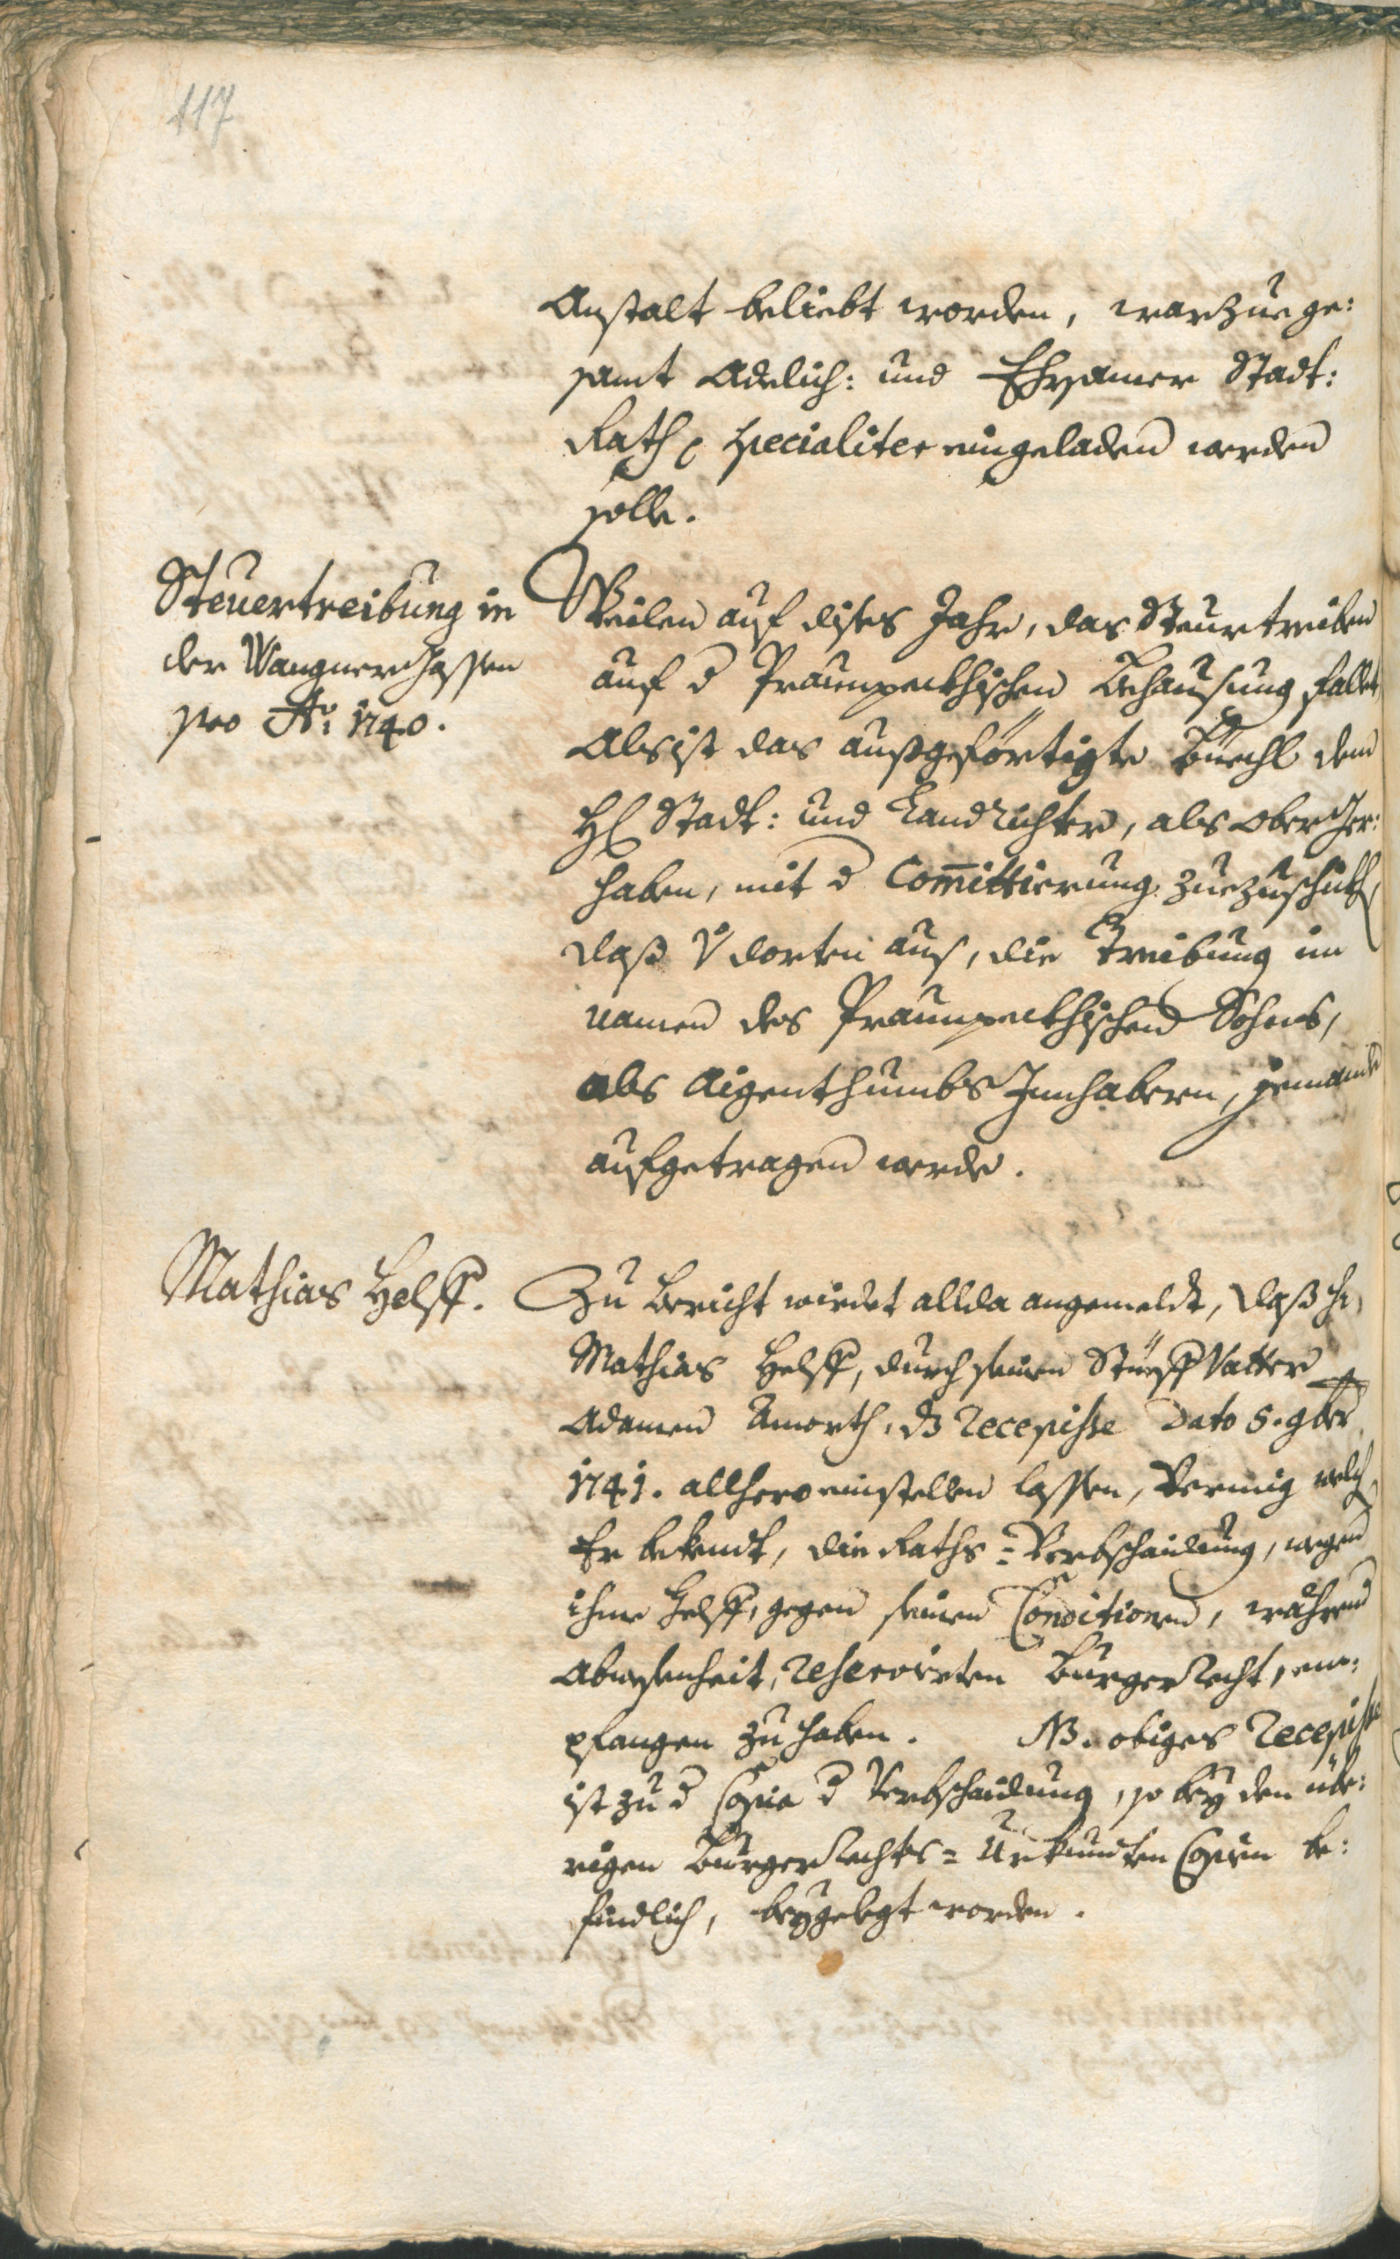 117
Anstalt beliebt worden, warzue ge:
samt Adelich: und Ehrsamer Stadt:
Rath specialiter eingeladen werden
solle.
Steuertreibung in
der Wangnergassen
pro Aō: 1740.
Weilen auf dises Jahr, das Steurtreiben
auf d Praunpeckhischen Behausung fallet
Als ist das außgeförtigte Büechl dem
H Stadt: und Landrichter, als Obergher:
haben, mit d Com̄ittierung zuezuschickh
daß v dorten aus, die Treibung im
namen des Praunpeckhischen Sohns,
als Aigenthumbs Innhabern, jemands
aufgetragen werde.
Mathias Helff.
Zu Bericht wirdet allda angemeldt, daß
Mathias Helff, durch seinen Stüeff Vatter
Adamen Amorth, ds Recepisse Dato 5. 9ber
1741. allhero einstellen lassen, Vermig welch
Er bekendt, die Raths=Verbschaidung, wegen
ihme Helff, gegen seinen Conditionen, während
Abwesenheit, reservirten Burger Recht, em:
pfangen zu haben. NB. obiges Recepisse
ist zu d Copia d Verbschaidung, so bey den übe:
rigen Burger Rechts=Urkundten Copien be:
findlich, beygelegt worden.